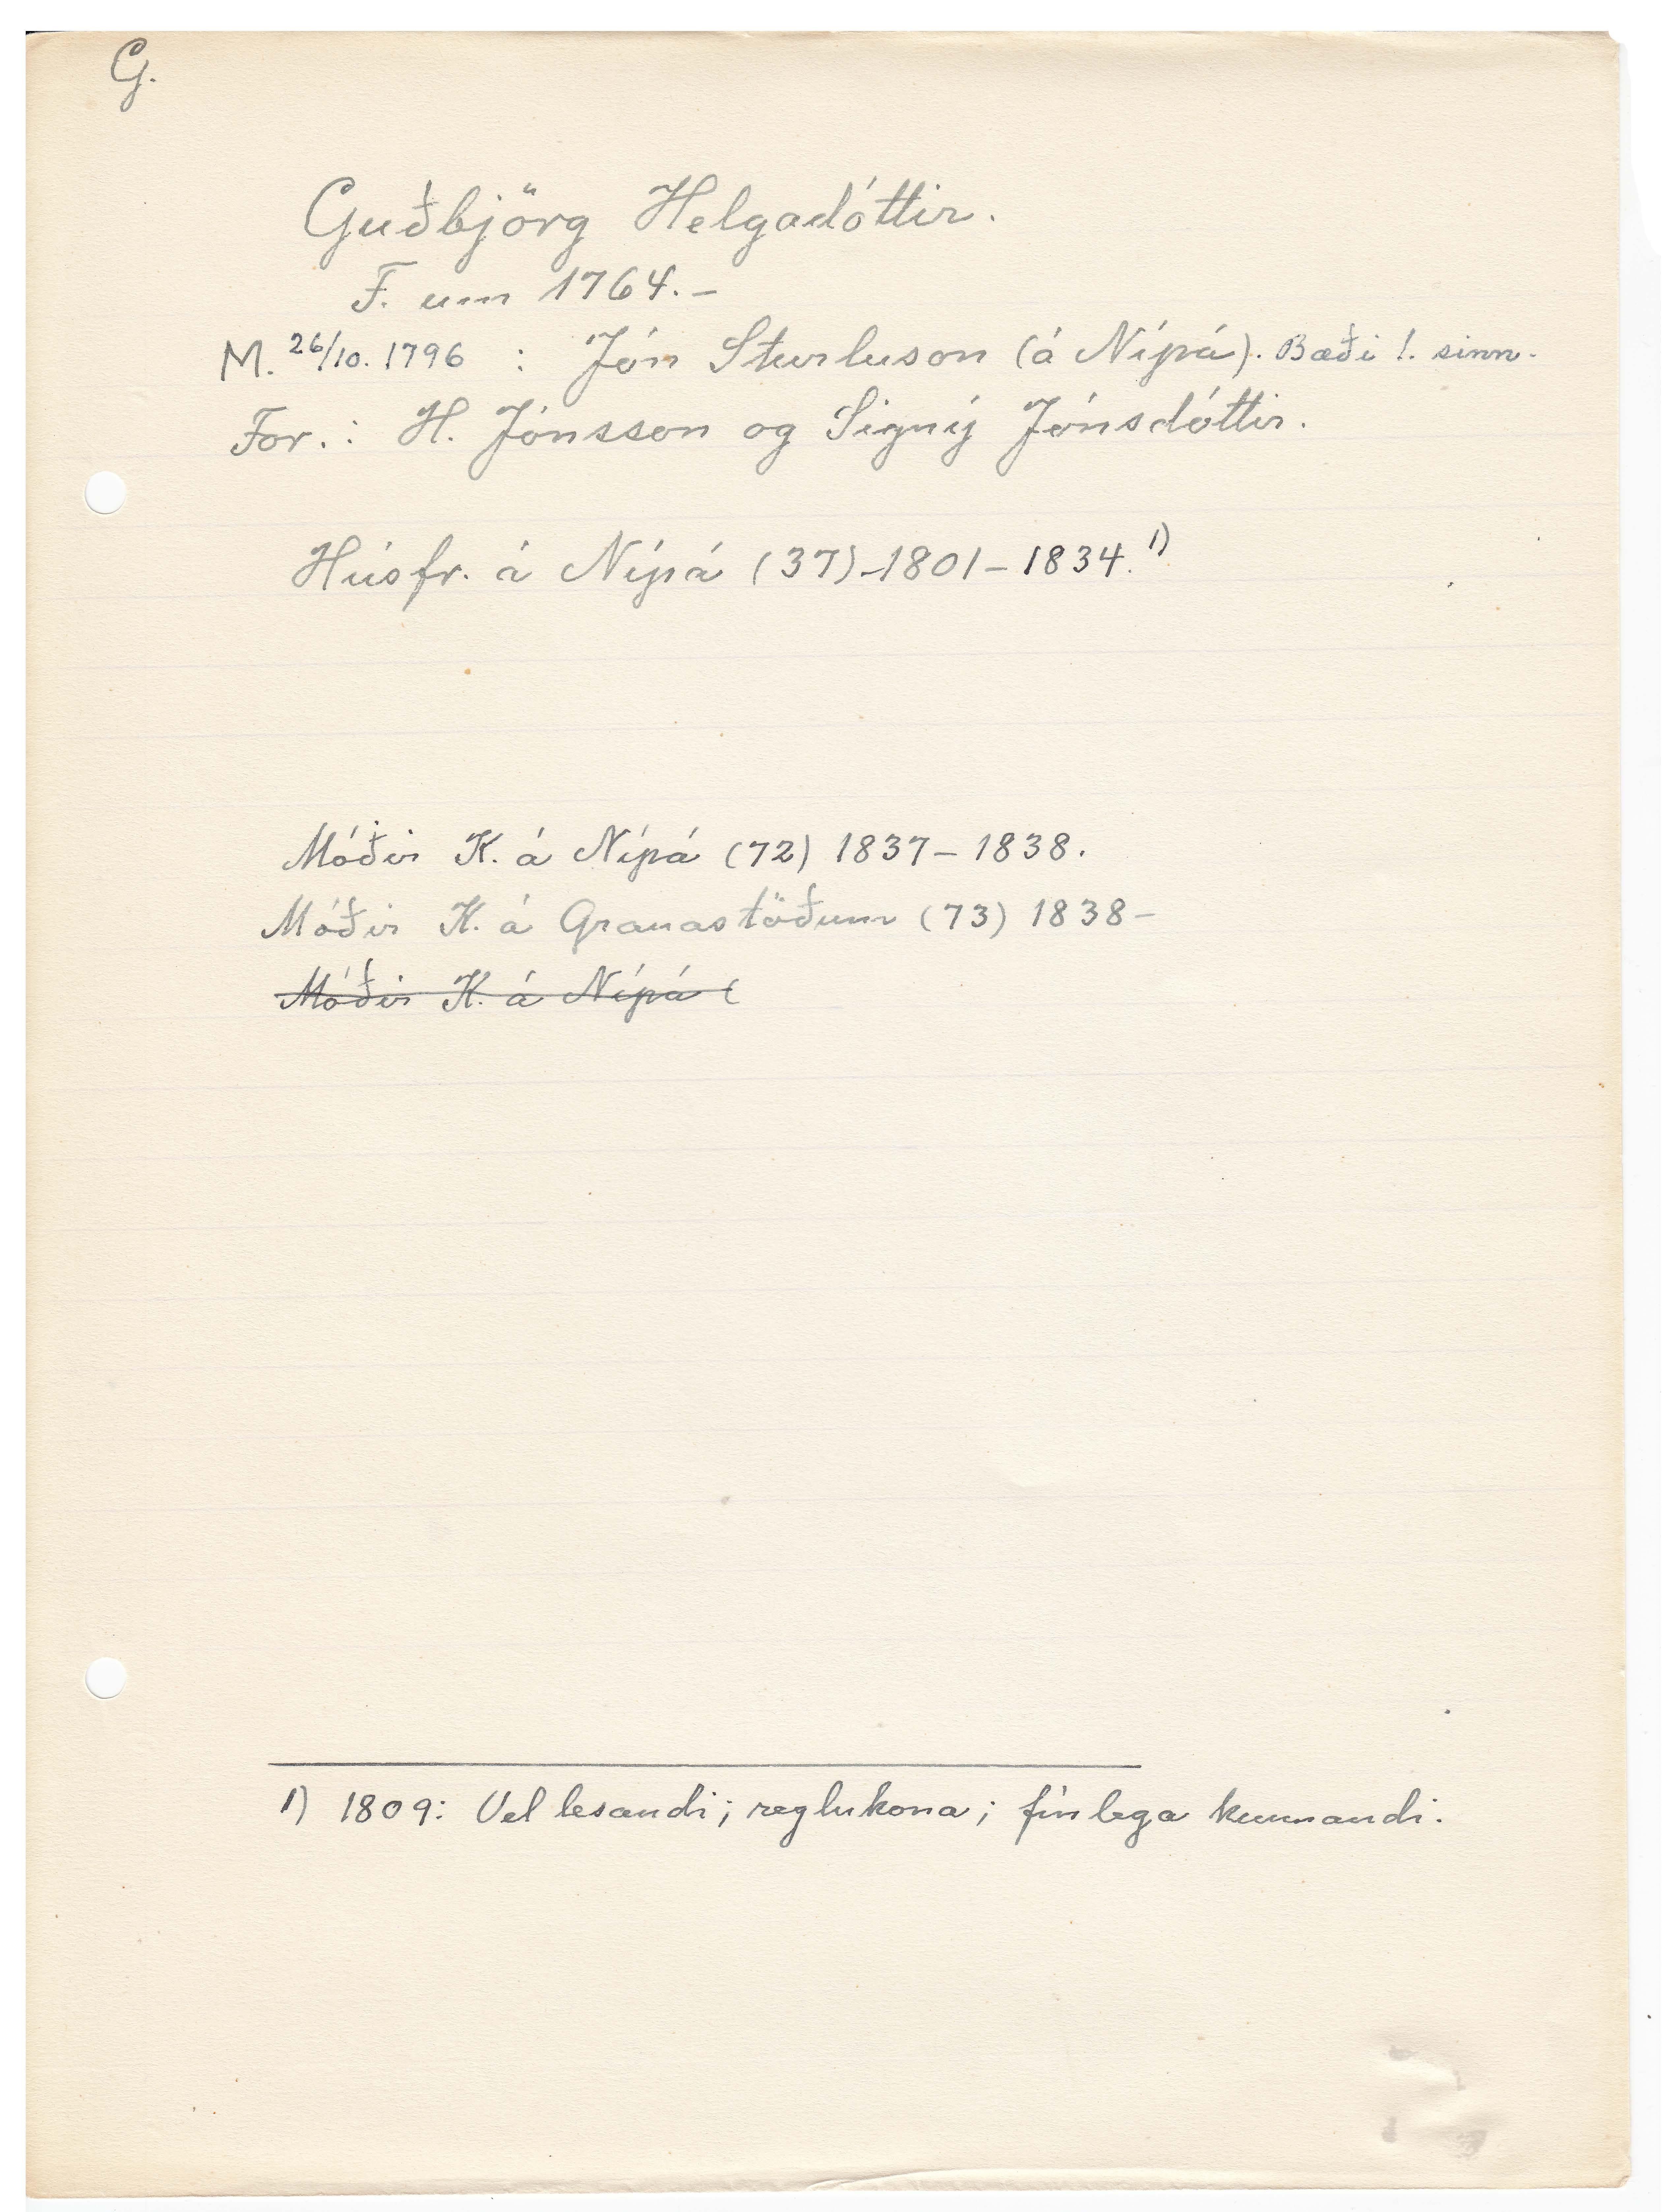 G.
Guðbjörg Helgadóttir.
F. um 1764.-
M. 26/10. 1796 : Jón Sturluson (á Nípá). Bæði 1. sinn.
For.: H. Jónsson og Signý Jónsdóttir.
Húsfr. á Nípá (37)-1801-1834. 1)
Móðir K. á Nípá (72) 1837-1838.
Móðir K. á Granastöðum (73) 1838-
Móðir K. á Nípá (
1) 1809: Vel lesandi; reglukona; fínlega kunnandi.